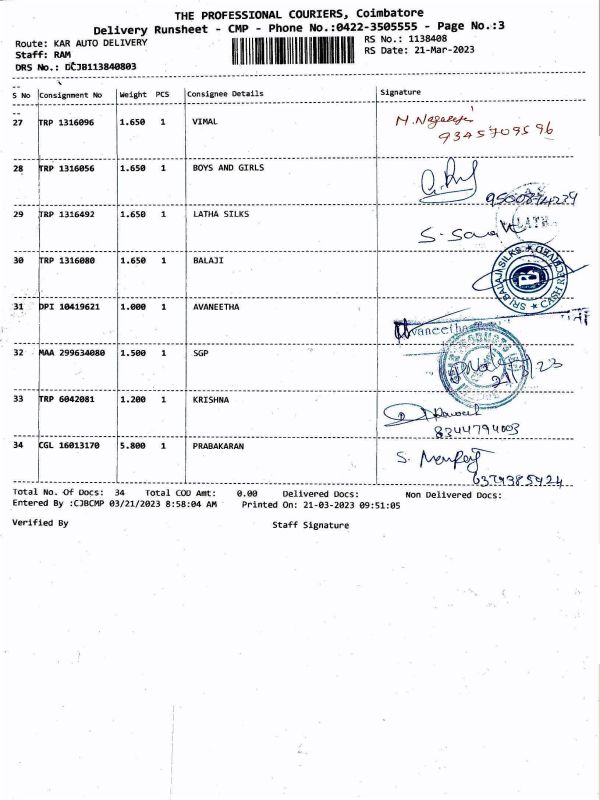 THE PROFESSIONAL COURIERS, Coimbatore
Delivery Runsheet - CMP - Phone No.:0422-3505555 - Page No.:3
Route: KAR AUTO DELIVERY
RS No.: 1138408
Staff: RAM
RS Date: 21-Mar-2023
DRS No.: DCJB113840803
S No Consignment No Weight PCS Consignee Details Signature
27 TRP 1316096 1.650 1 VIMAL
9345709596
28 TRP 1316056 1.650 1 BOYS AND GIRLS
29 TRP 1316492 1.650 1 LATHA SILKS
30 TRP 1316080 1.650 1 BALAJI
SRI BALAJI SILKS
31 DPI 10419621 1.000 1 AVANEETHA
32 MAA 299634080 1.500 1 SGP
21/3/23
33 TRP 6042081 1.200 1 KRISHNA
8344794003
34 CGL 16013170 5.800 1 PRABAKARAN
Total No. Of Docs: 34 Total COD Amt: 0.00 Delivered Docs: Non Delivered Docs:
Entered By :CJBCMP 03/21/2023 8:58:04 AM Printed On: 21-03-2023 09:51:05
Verified By Staff Signature